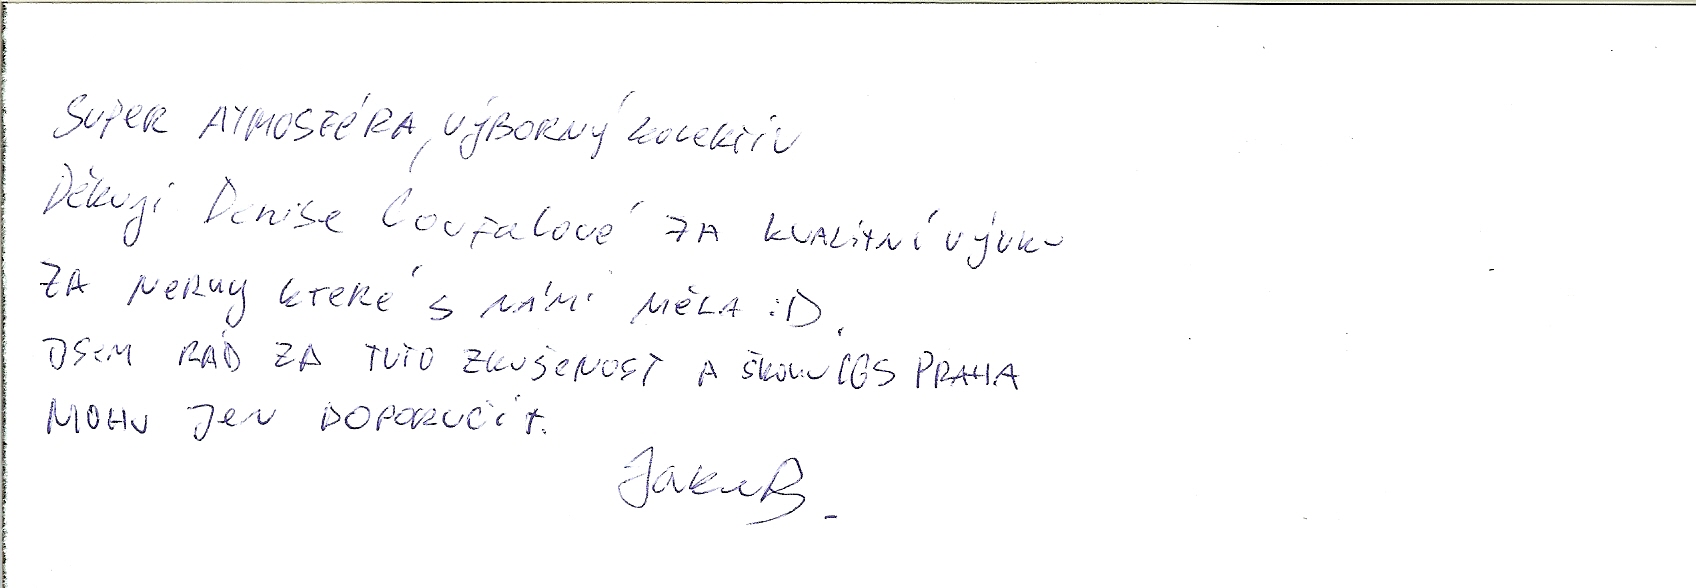 SUPER ATMOSFÉRA, VÝBORNÝ KOLEKTIV
Děkuji Denise Coufalové ZA KVALITNÍ VÝUKU
ZA NERVY KTERÉ S NÁMI MĚLA :D.
JSEM RÁD ZA TUTO ZKUŠENOST A ŠKOLU IGS PRAHA
MOHU JEN DOPORUČIT.
JakuB